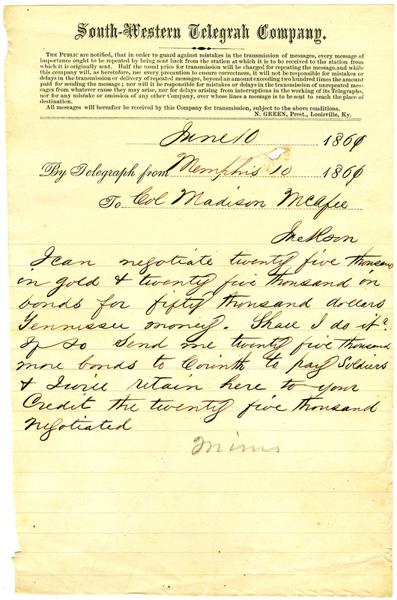 South-Western Telegraph Company.
THE PUBLIC are notified, that in order to guard against mistakes in the transmission of messages, every message of
importance ought to be repeated by being sent back from the station at which it is to be received to the station from
which it is originally sent. Half the usual price for transmission will be charged for repeating the message, and while
this company will, as heretofore, use every precaution to ensure correctness, it will not be responsible for mistakes or
delays in the transmission or delivery of repeated messages, beyond an amount exceeding two hundred times the amount
paid for sending the message; nor will it be responsible for mistakes or delays in the transmission of unrepeated messages
from whatever cause they may arise, nor for delays arising from interruptions in the working of its Telegraphs,
nor for any mistake or omission of any other Company, over whose lines a message is to be sent to reach the place of
destination.
All messages will hereafter be received by this Company for transmission, subject to the above conditions.
N. GREEN, Prest., Louisville, Ky.
June 10 1861
By Telegraph from Memphis 10 1861
To Col Madison McAfee
Jackson
I can negotiate twenty five thousand
in gold & twenty five thousand in
bonds for fifty thousand dollars
Tennessee money. Shall I do it?
If so send me twenty five thousand
more bonds to Corinth to pay Soldiers
& I will retain here to your
Credit the twenty five thousand
negotiated
Mims